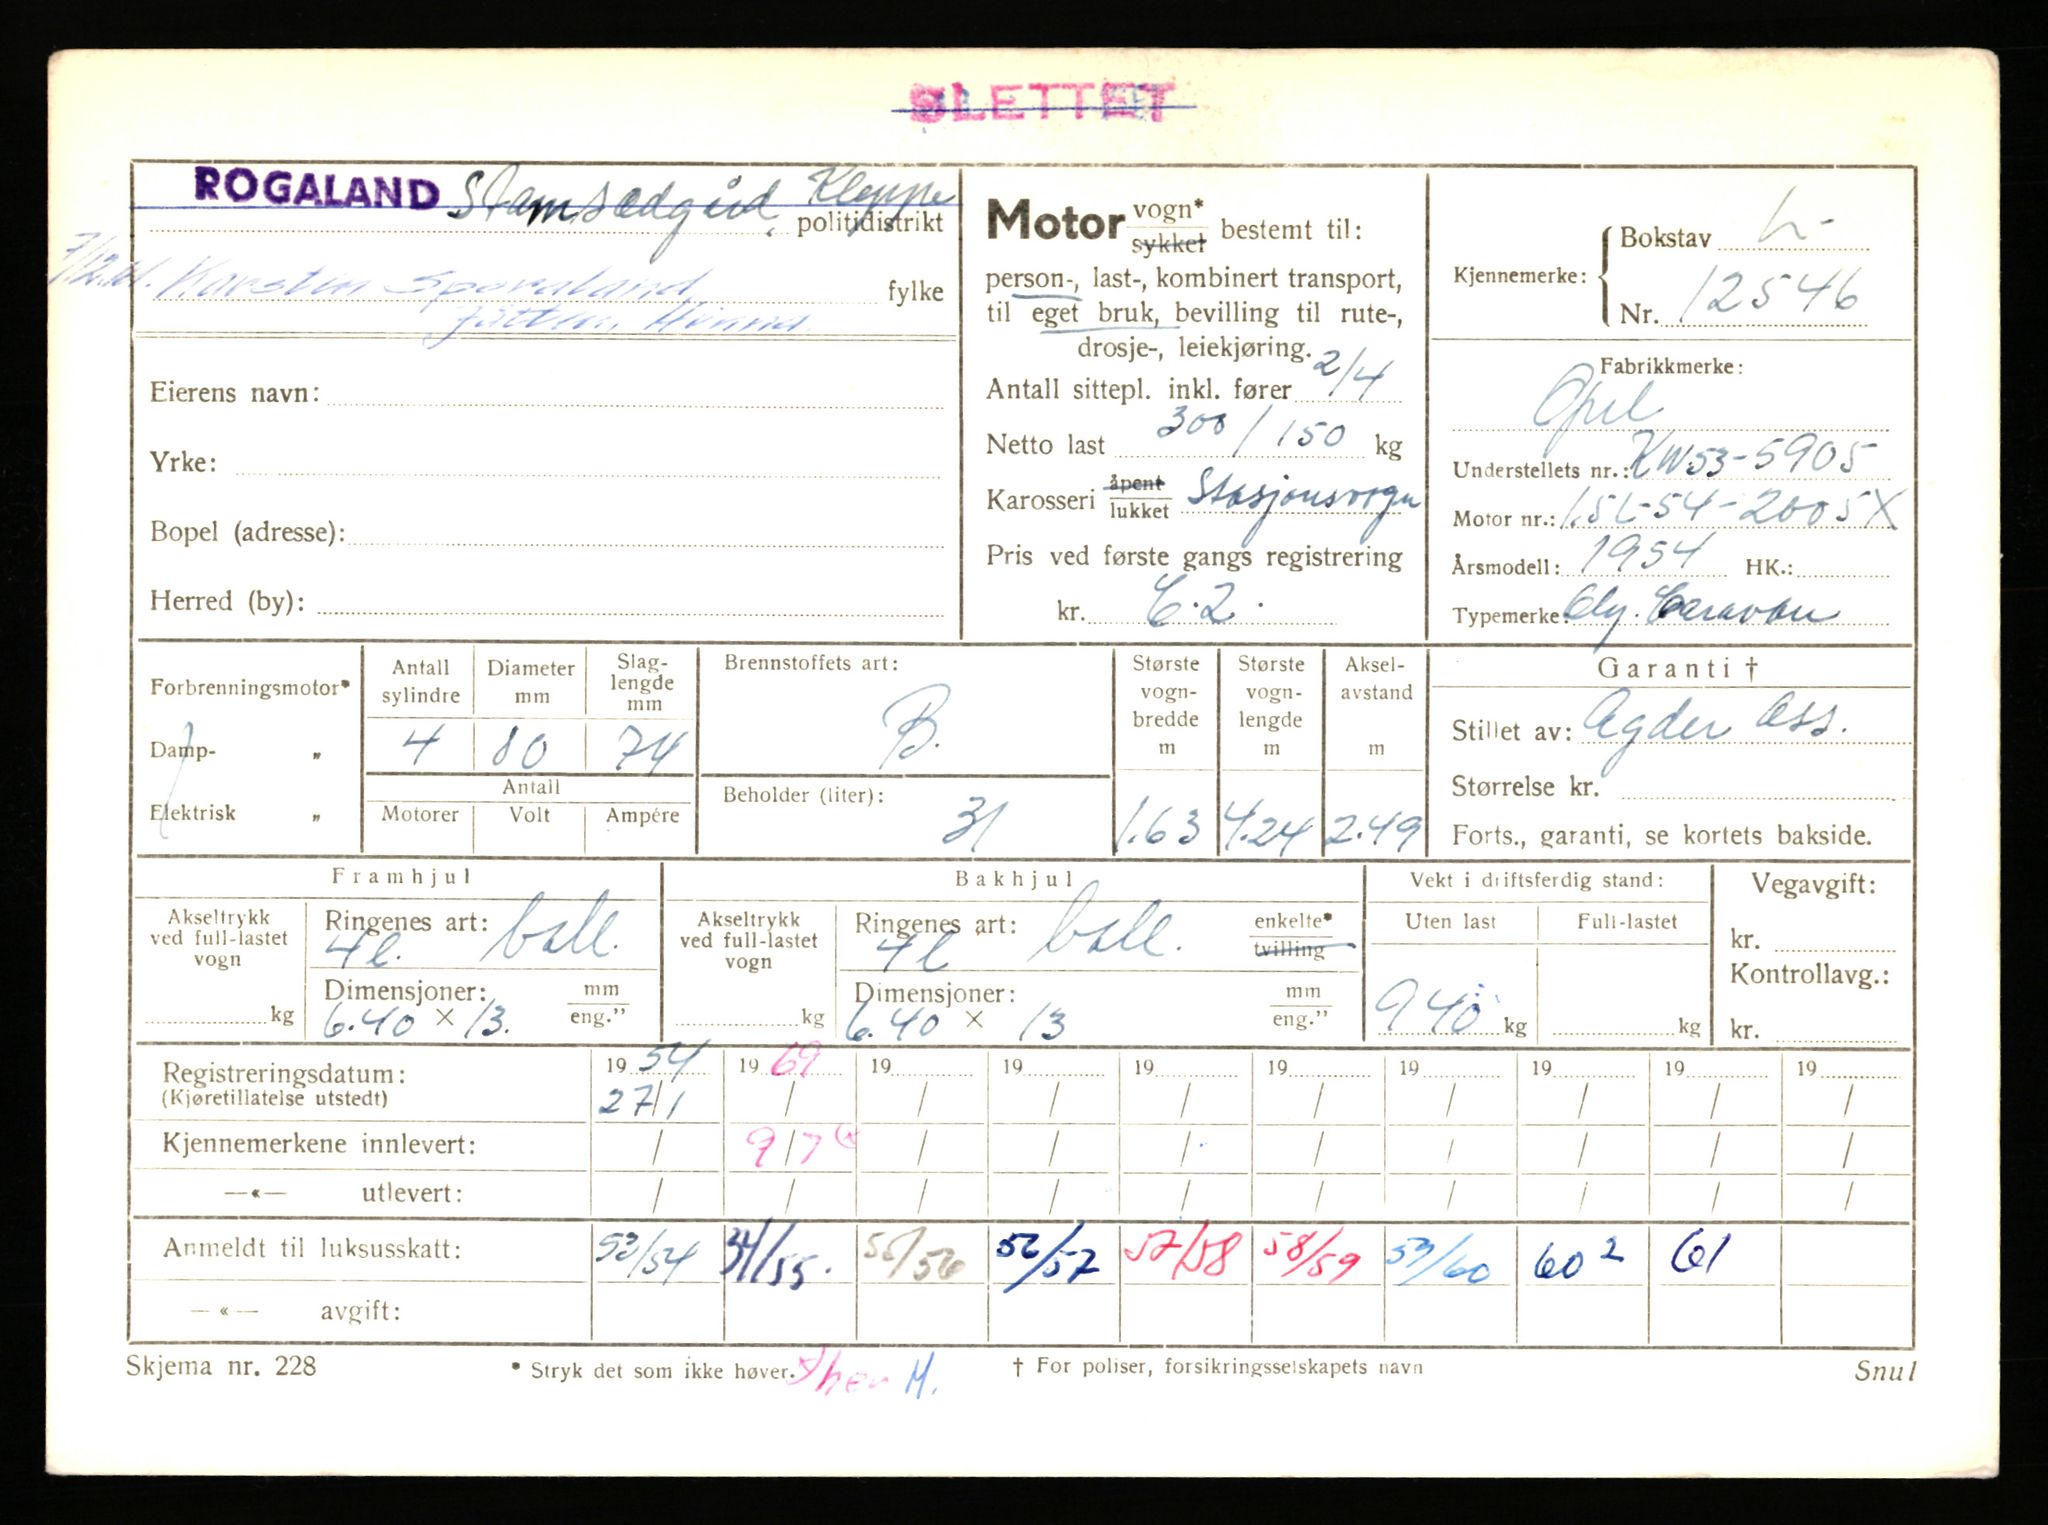 SLETTET
ROGALAND Stamsædgård, Kleppe
politidistrikt
7/12.61. Karsten
fylke
Jåtten, Hinna.
Eierens navn:
Yrke:
Bopel (adresse):
Herred (by):
Motor vogn* sykkel bestemt til:
person-, last-, kombinert transport,
til eget bruk, bevilling til rute-,
drosje-, leiekjøring.
Antall sittepl. inkl. fører 2/4
Netto last 300/150 kg
Karosseri åpent lukket Stasjonsvogn
Pris ved første gangs registrering
kr. C.2.
Kjennemerke: Bokstav L-
Nr. 12546
Fabrikkmerke:
Opel
Understellets nr.: KW53-5905
Motor nr.: 1.5L-54-2005X
Årsmodell: 1954 HK.:
Typemerke: Oly. Caravan
Forbrenningsmotor*
Damp- „
Elektrisk „
Antall sylindre
4
Diameter mm
80
Slag-
lengde
mm
74
Antall
Motorer Volt Ampére
Brennstoffets art:
B.
Beholder (liter):
31
Største
vogn-
bredde
m
1.63
Største
vogn-
lengde
m
4.24
Aksel-
avstand
m
2.49
Garanti †
Stillet av: Agder Ass.
Størrelse kr.
Forts., garanti, se kortets bakside.
Framhjul
Akseltrykk
ved full-lastet
vogn
kg
Ringenes art:
4l. ball.
Dimensjoner: mm
6.40 × 13. eng."
Bakhjul
Akseltrykk
ved full-lastet
vogn
kg
Ringenes art: enkelte*
4l ball. tvilling
Dimensjoner: mm
6.40 × 13 eng."
Vekt i driftsferdig stand:
Uten last Full-lastet
940 kg kg
Vegavgift:
kr.
Kontrollavg.:
kr.
Registreringsdatum: 19 54 19 69 19 19 19 19 19 19 19 19
(Kjøretillatelse utstedt) 27/1 / / / / / / / / /
Kjennemerkene innlevert: / 9/7 / / / / / / / /
—«— utlevert: / / / / / / / / / /
Anmeldt til luksusskatt: 53/54 54/55. 55/56 56/57 57/58 58/59 59/60 60² 61
—«— avgift:
Skjema nr. 228 * Stryk det som ikke høver. † For poliser, forsikringsselskapets navn Snul